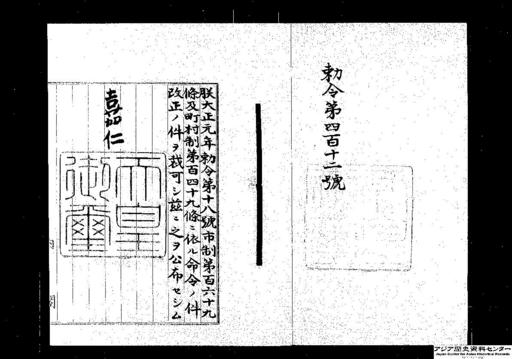 勅令第四百十二號
朕大正元年勅令第十八號市制第百六十九
條及町村制第百四十九條ニ依ル命令ノ件
改正ノ件ヲ裁可シ茲ニ之ヲ公布セシム
嘉仁
天皇
御璽
内閣
アジア歴史資料センター
Japan Center for Asian Historical Records